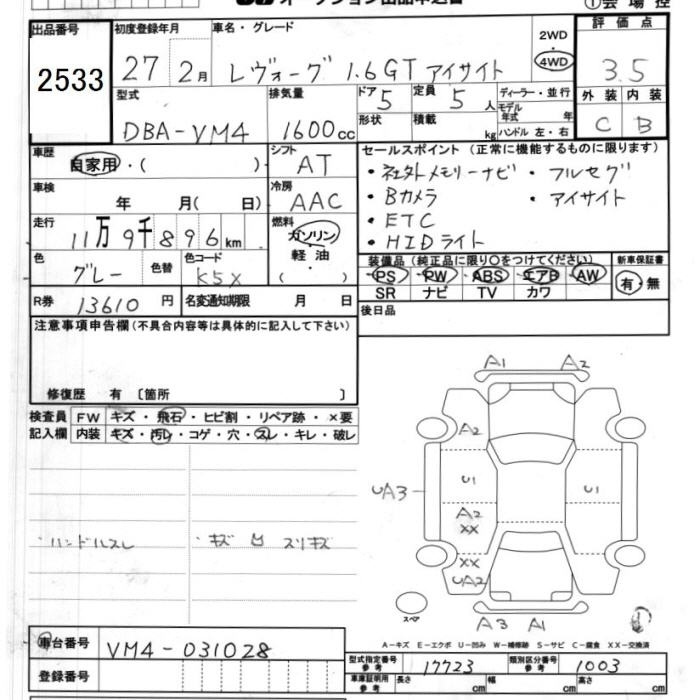 オークション出品申込書
①会場控
出品番号 2533
初度登録年月 27 2月
車名・グレード レヴォーグ 1.6GT アイサイト
2WD
4WD
評価点 3.5
外装 内装
C B
型式 DBA-VM4
排気量 1600cc
ドア 5
形状
定員 5人
積載 kg
ディーラー・並行
モデル年式 年
ハンドル 左・右
車歴 自家用・( )
シフト AT
車検 年 月( 日)
冷房 AAC
走行 11万9千896km
燃料 ガソリン
軽油
( )
色 グレー
色替
色コード K5X
R券 13610円
名変通知期限 月 日
セールスポイント(正常に機能するものに限ります)
・社外メモリーナビ ・フルセグ
・Bカメラ ・アイサイト
・ETC
・HIDライト
装備品(純正品に限り○をつけてください)
PS PW ABS エアB AW
SR ナビ TV カワ
新車保証書
有・無
後日品
注意事項申告欄(不具合内容等は具体的に記入して下さい)
修復歴 有〔箇所 〕
検査員
記入欄
FW キズ・飛石・ヒビ割・リペア跡・×要
内装 キズ・汚れ・コゲ・穴・スレ・キレ・破レ
・ハンドルスレ ・キズ 凹 スリキズ
A1 A2
A2
U1 U1
UA3
A2
XX
XX
UA2
スペア
A3 A1
A-キズ E-エクボ U-凹み W-補修跡 S-サビ C-腐食 XX-交換済
車台番号 VM4-031028
登録番号
型式指定番号
参考
17723
類別区分番号
参考
1003
車庫証明用
参考
長さ cm 幅 cm 高さ cm